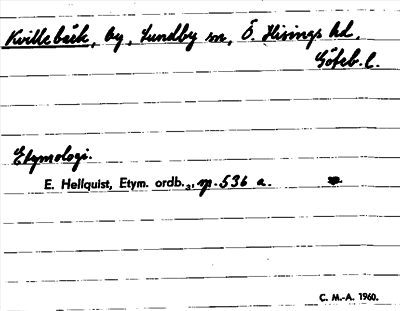 Kvillebäck, by, Lundby sn, Ö. Hisings hd.
Göteb. l.
Etymologi.
E. Hellquist, Etym. ordb.₃, sp. 536 a.
C. M.-A. 1960.